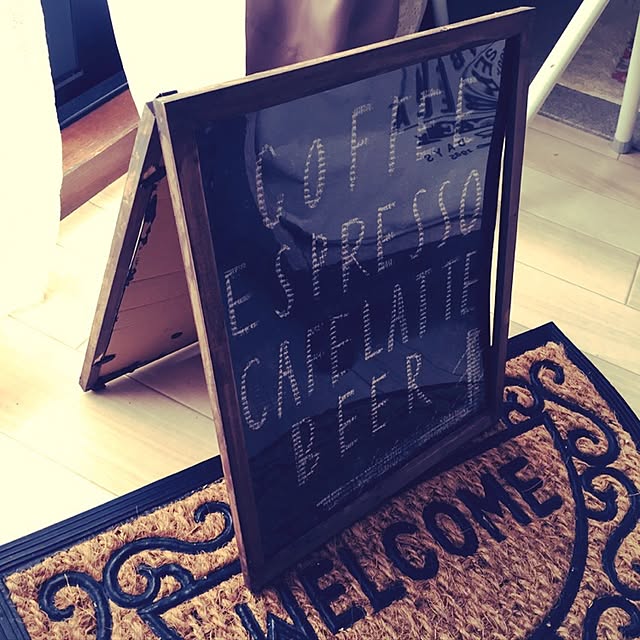 COFFEE
ESPRESSO
CAFE LATTE
BEER
WELCOME